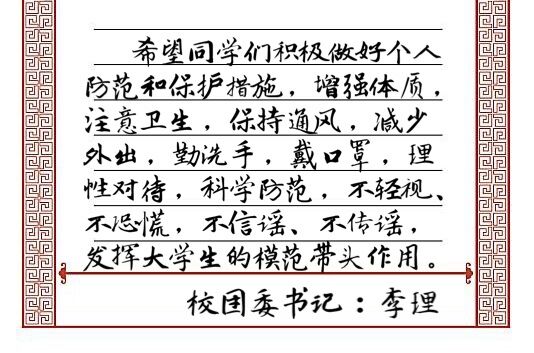 希望同学们积极做好个人
防范和保护措施，增强体质，
注意卫生，保持通风，减少
外出，勤洗手，戴口罩，理
性对待，科学防范，不轻视、
不恐慌，不信谣、不传谣，
发挥大学生的模范带头作用。
校团委书记：李理